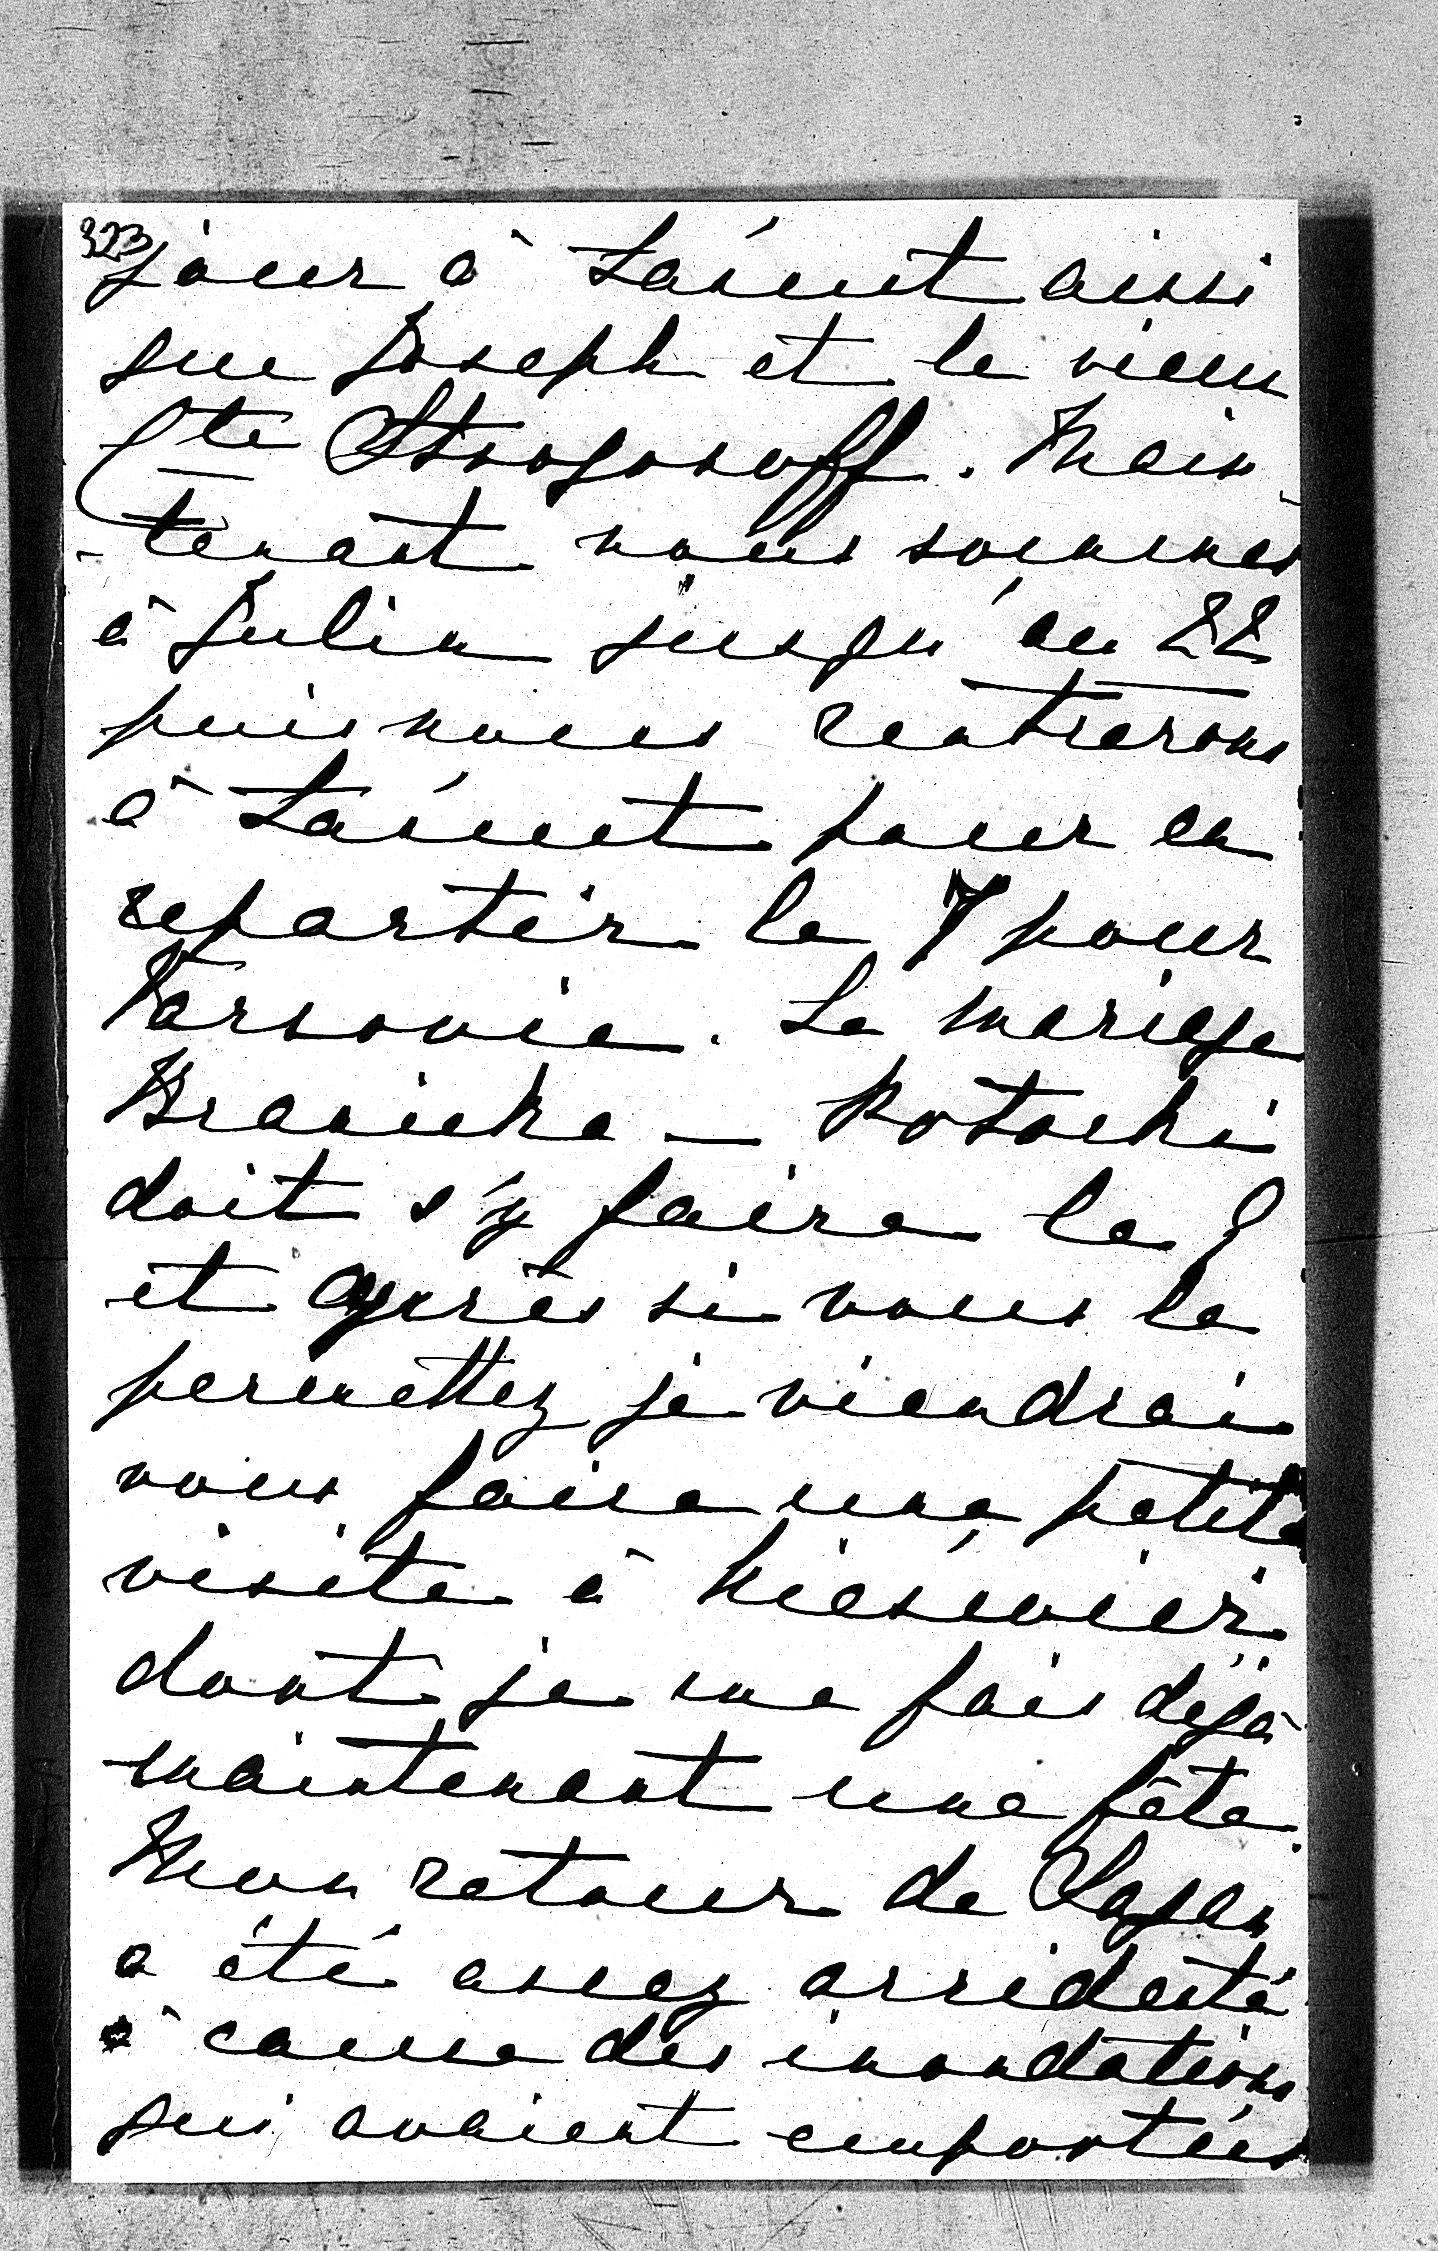 323
jour à Łańcut aussi
que Joseph et le vieux
Cte Strogonoff. Main
-tenant nous sommes
à Julin jusqu'au 22
puis nous rentrerons
à Łańcut pour en
repartir le 7 pour
Varsovie. Le mariage
Branicka - Potocki
doit s'y faire le 9
et après si vous le
permettez je viendrai
vous faire une petite
visite à Nieśwież
dont je me fais déjà
maintenant une fête.
Mon retour de
a été assez
à cause des inondations
qui avaient emportées